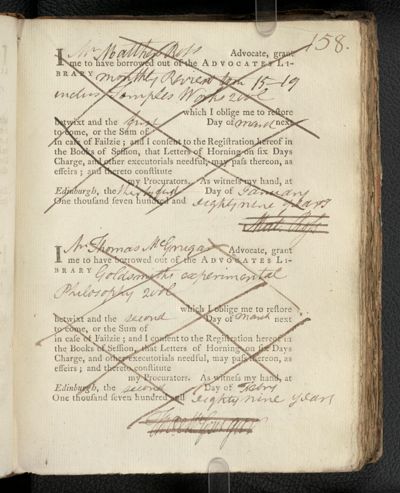 158.
I Mr Matthew Ross Advocate, grant
me to have borrowed out of the ADVOCATES LI-
BRARY monthly Review from 15-19
inclus. Temples Works 2 vol
which I oblige me to restore
betwixt and the first Day of march next
to come, or the Sum of
in case of Failzie; and I consent to the Registration hereof in
the Books of Session, that Letters of Horning on six Days
Charge, and other executorials needful, may pass thereon, as
effeirs; and thereto constitute
my Procurators. As witness my hand, at
Edinburgh, the Day of January
One thousand seven hundred and eighty nine years
Matt. Ross
I Mr Thomas McGrugar Advocate, grant
me to have borrowed out of the ADVOCATES LI-
BRARY Goldsmiths experimental
Philosophy 2 vol
which I oblige me to restore
betwixt and the second Day of March next
to come, or the Sum of
in case of Failzie; and I consent to the Registration hereof in
the Books of Session, that Letters of Horning on six Days
Charge, and other executorials needful, may pass thereon, as
effeirs; and thereto constitute
my Procurators. As witness my hand, at
Edinburgh, the second Day of Febry
One thousand seven hundred and eighty nine years
Tho. McGrugar